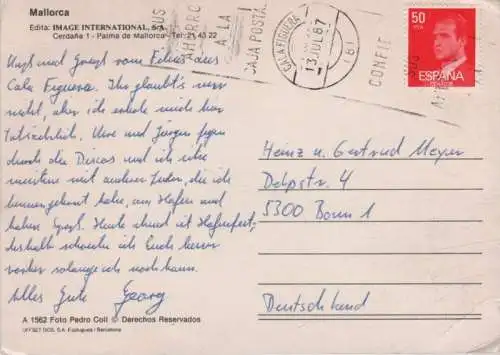 Mallorca
Edita: IMAGE INTERNATIONAL, S/A.
Cerdaña 1 - Palma de Mallorca - Tel: 21 43 22
SUS
AHORRO
A LA
CAJA POSTAL
CALA FIGUERA
13 JUL 87
CONFIE
SUS
50
PTA
ESPAÑA
CORREOS
und vom Felius aus
Cala Figuera. Ihr glaubt's
nicht, aber ich erhole mich hier
tatsächlich. Uwe und Jürgen
durch die Discos und ich
meistens mit anderen die ich
kennengelernt habe, am Hafen und
haben Spaß. Heute abend ist Hafenfest;
deshalb ich Euch
solange ich noch kann.
Alles Gute Georg
Heinz u. Gertrud Meyer
4
5300 Bonn 1
Deutschland
A 1562 Foto Pedro Coll © Derechos Reservados
OFFSET DOS, S.A. Esplugues / Barcelona